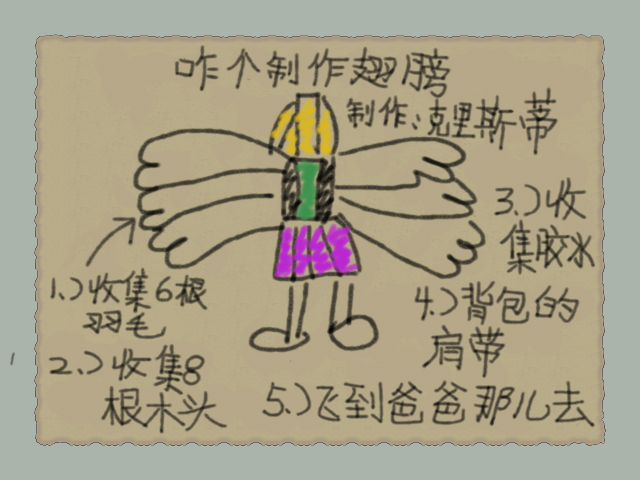 咋个制作翅膀
制作:克里斯蒂
1.)收集6根
羽毛
2.)收集8
根木头
3.)收
集胶水
4.)背包的
肩带
5.)飞到爸爸那儿去